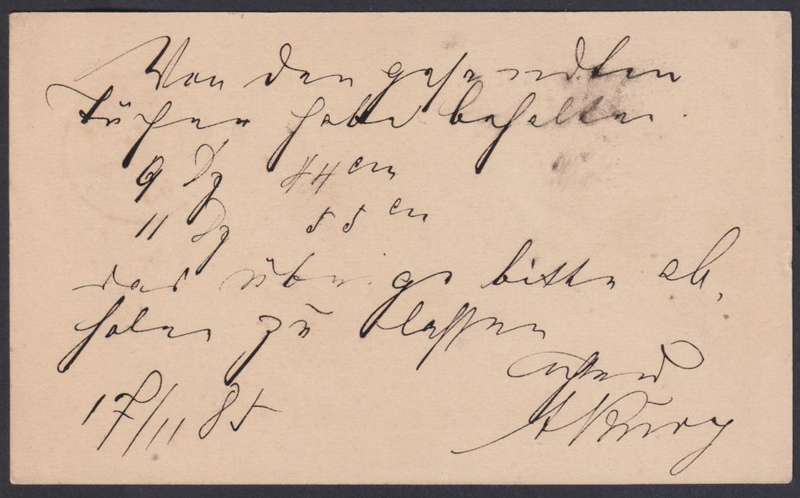 Von den gesandten
Tücher habe behalten.
9 Dz 44 cm
11 Dz 55 cm
das übrige bitte ab,
holen zu lassen
17/11 85